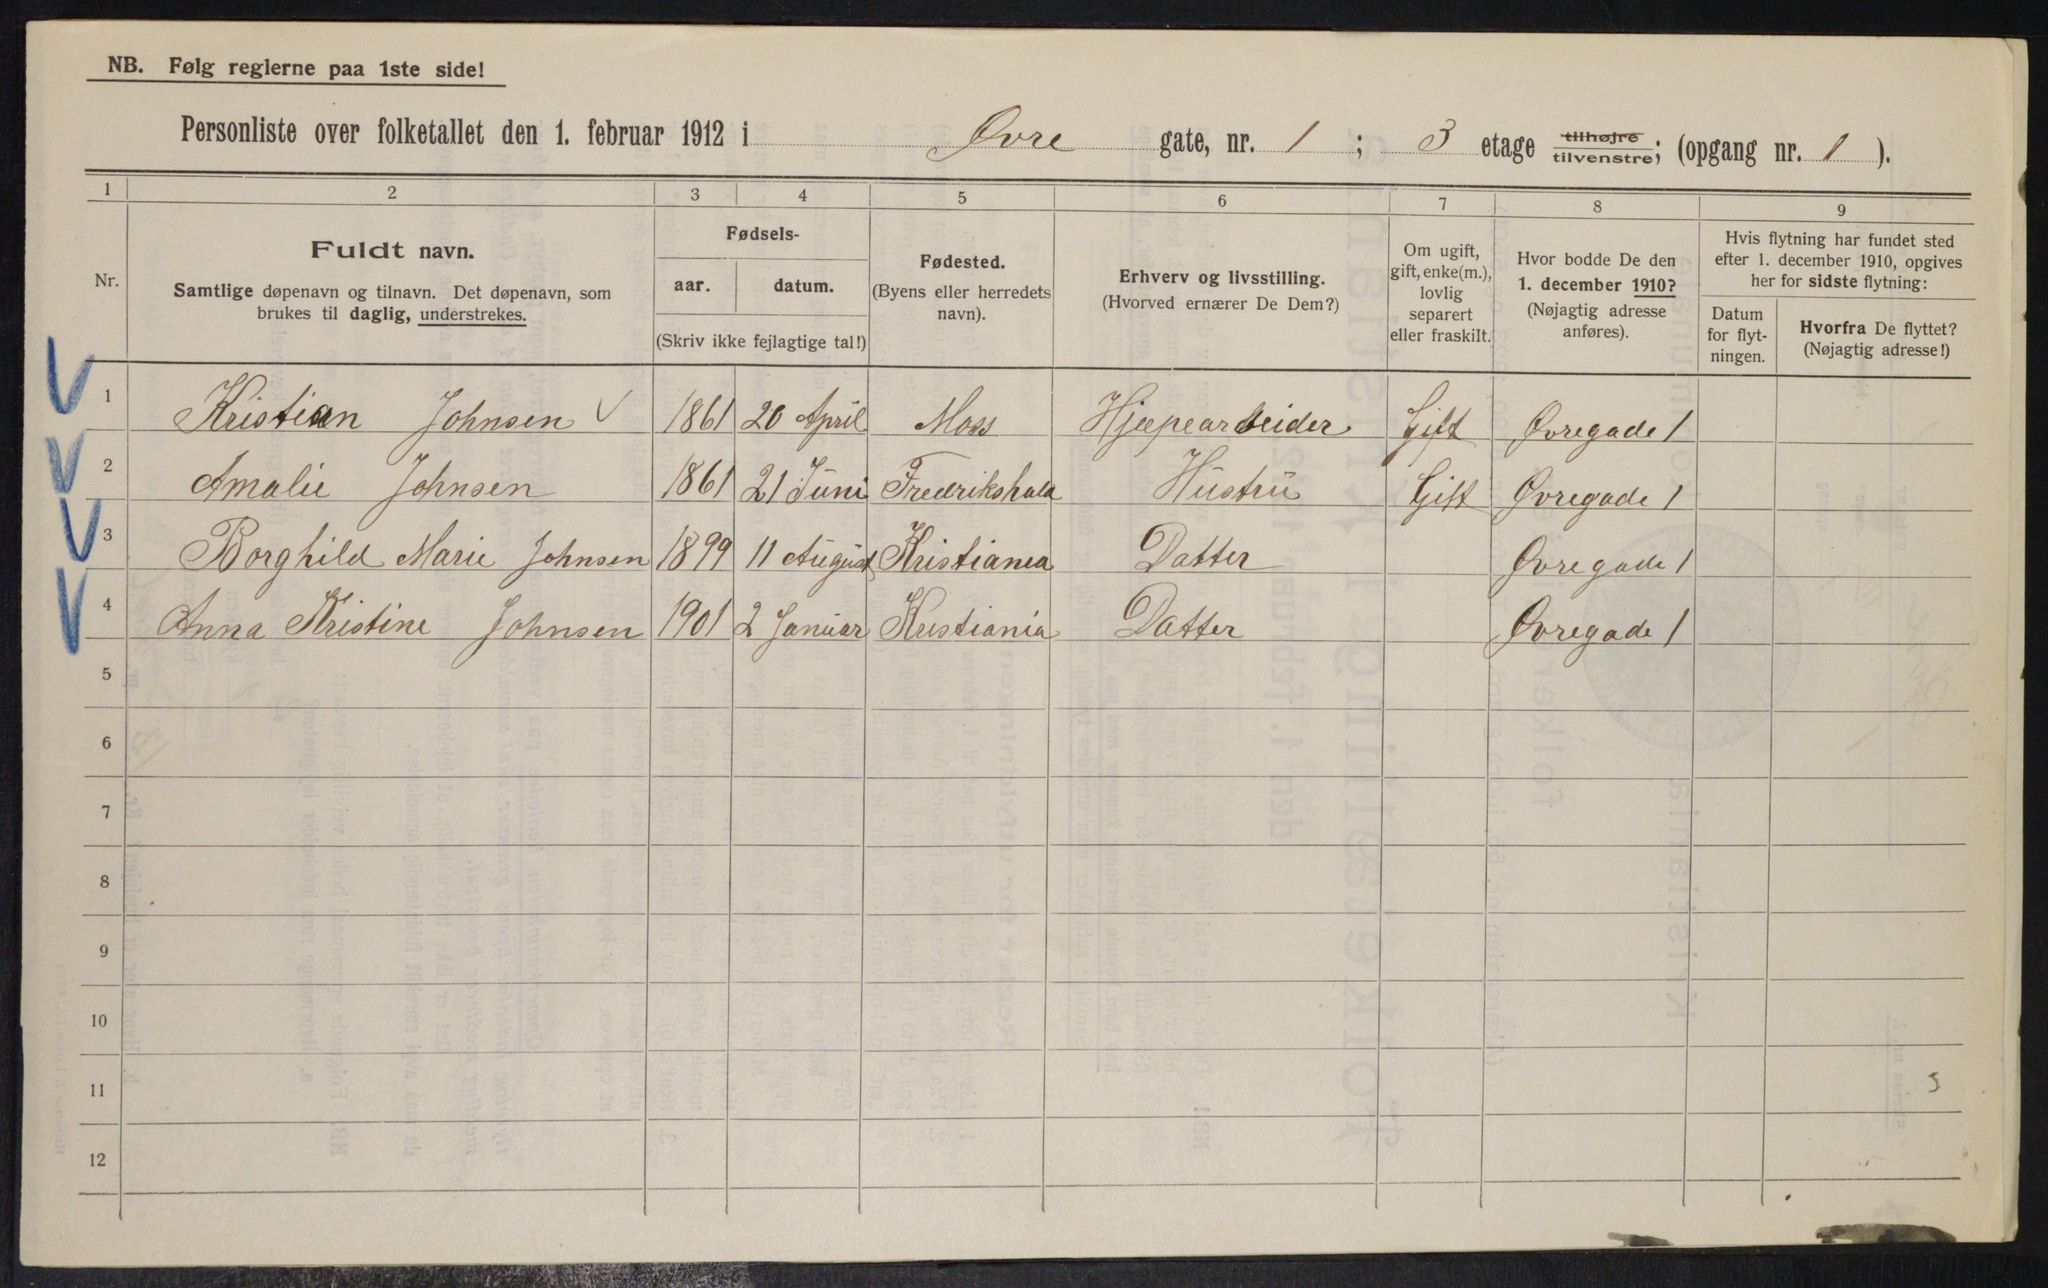 NB. Følg reglerne paa 1ste side!
Personliste over folketallet den 1. februar 1912 i Øvre gate, nr. 1; 3 etage tilhøjre tilvenstre; (opgang nr. 1).
1 2 3 4 5 6 7 8 9
Nr.
Fuldt navn.
Samtlige døpenavn og tilnavn. Det døpenavn, som
brukes til daglig, understrekes.
Fødsels-
aar. datum.
(Skriv ikke fejlagtige tal!)
Fødested.
(Byens eller herredets
navn).
Erhverv og livsstilling.
(Hvorved ernærer De Dem?)
Om ugift,
gift, enke(m.),
lovlig
separert
eller fraskilt.
Hvor bodde De den
1. december 1910?
(Nøjagtig adresse
anføres).
Hvis flytning har fundet sted
efter 1. december 1910, opgives
her for sidste flytning:
Datum
for flyt-
ningen.
Hvorfra De flyttet?
(Nøjagtig adresse!)
1 Kristian Johnsen 1861 20 April Moss Hjæpearbeider Gift Øvregade 1
2 Amalie Johnsen 1861 21 Juni Fredrikshald Hustru Gift Øvregade 1
3 Borghild Marie Johnsen 1899 11 August Kristiania Datter Øvregade 1
4 Anna Kristine Johnsen 1901 2 Januar Kristiania Datter Øvregade 1
5
6
7
8
9
10
11
12